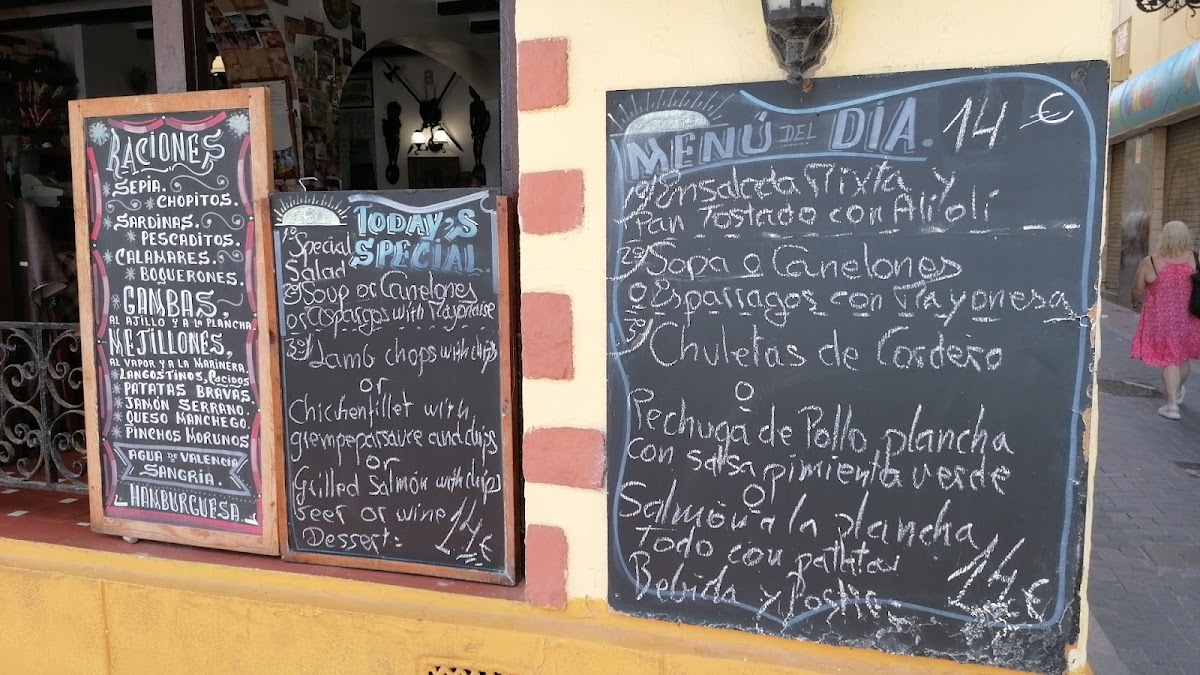 RACIONES
SEPIA.
CHOPITOS.
SARDINAS.
PESCADITOS.
CALAMARES.
BOQUERONES.
GAMBAS,
AL AJILLO Y A LA PLANCHA
MEJILLONES,
AL VAPOR Y A LA MARINERA.
LANGOSTINOS, Cocidos
PATATAS BRAVAS.
JAMÓN SERRANO.
QUESO MANCHEGO.
PINCHOS MORUNOS
AGUA DE VALENCIA
SANGRÍA.
HAMBURGUESA.
TODAY,S
SPECIAL.
1º Special
Salad
2º Soup or Canelones
or Aspargos with Mayonaise
3º Lamb chops with chips
or
Chichenfillet with
grempeparsauce and chips
or
Grilled Salmón with chips
beer or wine
Dessert: 14 €
MENÚ DEL DÍA. 14 €
1º Ensalada Mixta y
Pan Tostado con Ali olí
2º Sopa o Canelones
o Esparragos con Mayonesa
3º Chuletas de Cordero
o
Pechuga de Pollo plancha
con salsa pimienta verde
o
Salmón a la plancha
Todo con patatas
Bebida y Postre. 14 €